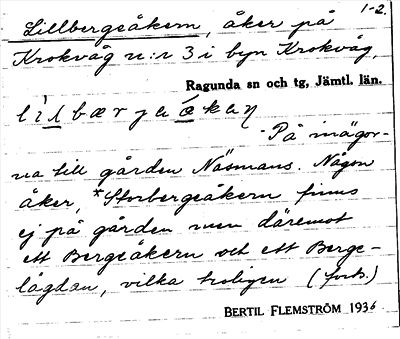 1-2.
Lillbergeåkern, åker på
Krokvåg n:r 3 i byn Krokvåg,
Ragunda sn och tg, Jämtl. län.
På inägor-
na till gården Näsmans. Någon
åker, *Storbergeåkern finns
ej på gården men däremot
ett Bergeåkern och ett Berge-
lägdan, vilka troligen (forts.)
BERTIL FLEMSTRÖM 1936